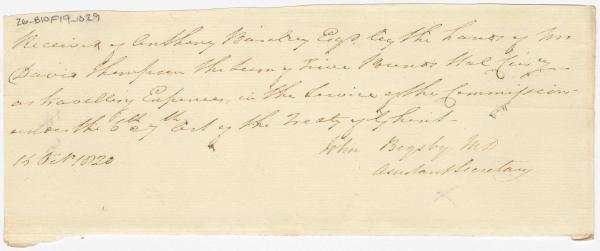 26-B10F19-1029
Received of Anthony Barclay Esqr by the hands of Mr
David Thompson the sum of Five Pounds Hal. Cur.y
as travelling Expenses, in the Service of the Commission
under the 6th & 7th Art of the Treaty of Ghent.
16 Oct 1820
John Bigsby MD
Assistant Secretary